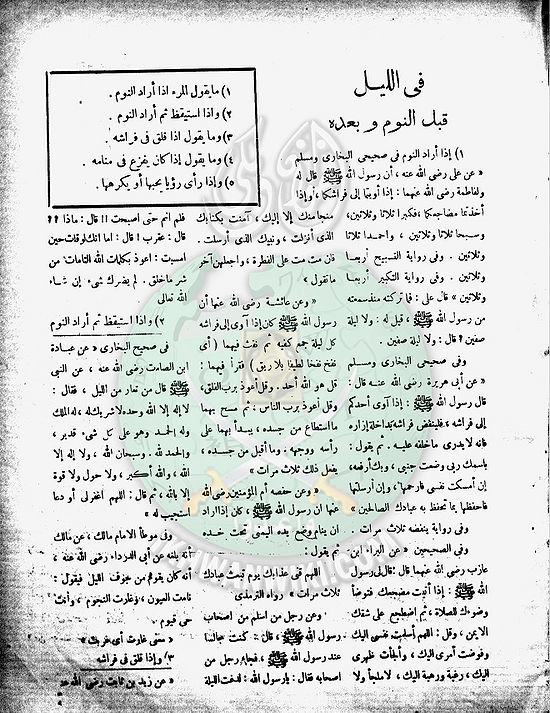 في الليل
قبل النوم وبعده
١) ما يقول المرء اذا أراد النوم .
٢) واذا استيقظ ثم أراد النوم .
٣) وما يقول اذا قلق في فراشه .
٤) وما يقول إذا كان يفزع في منامه .
٥) وإذا رأى رؤيا يحبها أو يكرهها .
١) إذا أراد النوم في صحيحي البخارى ومسلم
« عن على رضى الله عنه ، أن رسول الله ﷺ قال له
ولفاطمة رضى الله عنهما : إذا أويتما إلى فراشكما ، أو إذا
أخذتما مضاجعكما ، فكبرا ثلاثا وثلاثين ،
وسبحا ثلاثا وثلاثين ، واحمدا ثلاثا
وثلاثين . وفى رواية التسبيح أربعـا
وثلاثين . وفى رواية التكبير أربعـا
وثلاثين » قال على : فما تركته منذ سمعته
من رسول الله ﷺ ، قيل له : ولا ليلة
صفين ؟ قال : ولا ليلة صفين .
وفى صحيحى البخارى ومسلم
« عن أبى هريرة رضى الله عنه قال :
قال رسول الله ﷺ : إذا آوى أحدكم
إلى فراشه ، فلينفض فراشه بداخلة إزاره
فانه لا يدرى ما خلفه عليـه . ثم يقول :
باسمك ربى وضعت جنبى ، وبك أرفعه ،
إن أمسكت نفسى فارحمها ، وإن أرسلتها
فاحفظها بما تحفظ به عبادك الصالحين »
وفى رواية ينفضه ثلاث مرات .
وفى الصحيحين « عن البراء ابن
عازب رضى الله عنهما قال : قال لى رسول
الله ﷺ : إذا أتيت مضجعك فتوضأ
وضوءك للصلاة ، ثم اضطجع على شقك
الايمن ، وقل : اللهم أسلمت نفسى اليك
وفوضت أمرى اليك ، وألجأت ظهرى
اليك ، رغبة ورهبة اليك ، لا ملجأ ولا
منجا منك إلا إليك ، آمنت بكتابك
الذى أنزلت ، ونبيك الذى أرسلت .
فان مت مت على الفطرة ، واجعلهن آخر
ما تقول »
« وعن عائشة رضى الله عنها أن
رسول الله ﷺ كان إذا آوى إلى فراشه
كل ليلة جمع كفيه ثم نفث فيهما ( أى
نفخ نفخا لطيفا بلا ريق ) فقرأ فيهما :
قل هو الله أحد . وقل أعوذ برب الفلق ،
وقل أعوذ برب الناس ; ثم مسح بهما
ما استطاع من جسده ، يبدأ بهما على
رأسه ووجهه . وما أقبل من جسده ،
يفعل ذلك ثلاث مرات »
« وعن حفصه أم المؤمنين رضى الله
عنها أن رسول الله ﷺ ، كان إذا اراد
ان ينام وضع يده اليمنى تحت خـده
ثم يقول :
اللهم قنى عذابك يوم تبعث عبادك
ثلاث مرات » رواه الترمذى
« وعن رجل من اسلم من اصحاب
رسول الله ﷺ ، قال : كنت جالسا
عند رسول الله ﷺ ، فجاء رجل من
اصحابه فقال : يارسول الله : لدغت الليلة
فلم انم حتى اصبحت !! قال : ماذا ؟؟
قال : عقرب ! قال : اما انك لو قلت حين
امسيت : اعوذ بكلمات الله التامات من
شر ما خلق . لم يضرك شىء إن شـاء
الله تعالى
٢) واذا استيقظ ثم أراد النوم
فى صحيح البخارى « عن عبادة
ابن الصامت رضى الله عنه ، عن النبى
ﷺ قال من تعار من الليل ، فقال :
لا إله إلا الله وحده لا شريك له ، له الملك
وله الحمـد وهو على كل شىء قدير ،
والحمد لله . وسبحان الله ، ولا إله إلا
الله ، والله أكبر ، ولا حول ولا قوة
إلا بالله ، ثم قال : اللهم اغفر لى أو دعا
استجيب له »
وفى موطأ الامام مالك ، عن مالك
أنه بلغه عن أبى الدرداء رضى الله عنه ،
أنه كان يقوم من جوف الليل فيقول :
نامت العيون ، وغارت النجوم ، وأنت
حى قيوم
« معنى غارت أى غربت »
٣) وإذا قلق فى فراشه
« عن زيد بن ثابت رضى الله عنه